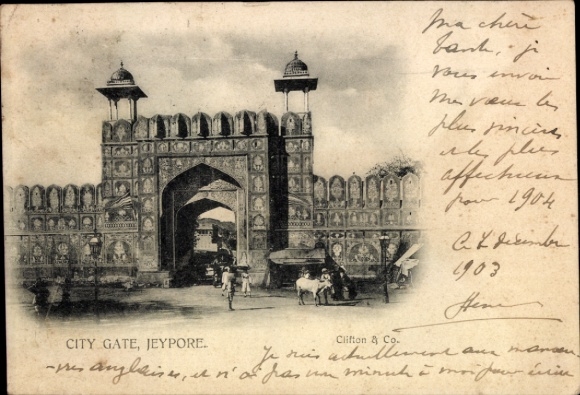 Ma chère
tante, je
vous envoie
mes vœux les
plus sincères
et les plus
affectueux
pour 1904
décembre
1903
CITY GATE, JEYPORE.
Clifton & Co.
Je suis actuellement aux manœu-
-vres anglaises, et n'ai pas une minute à moi pour écrire